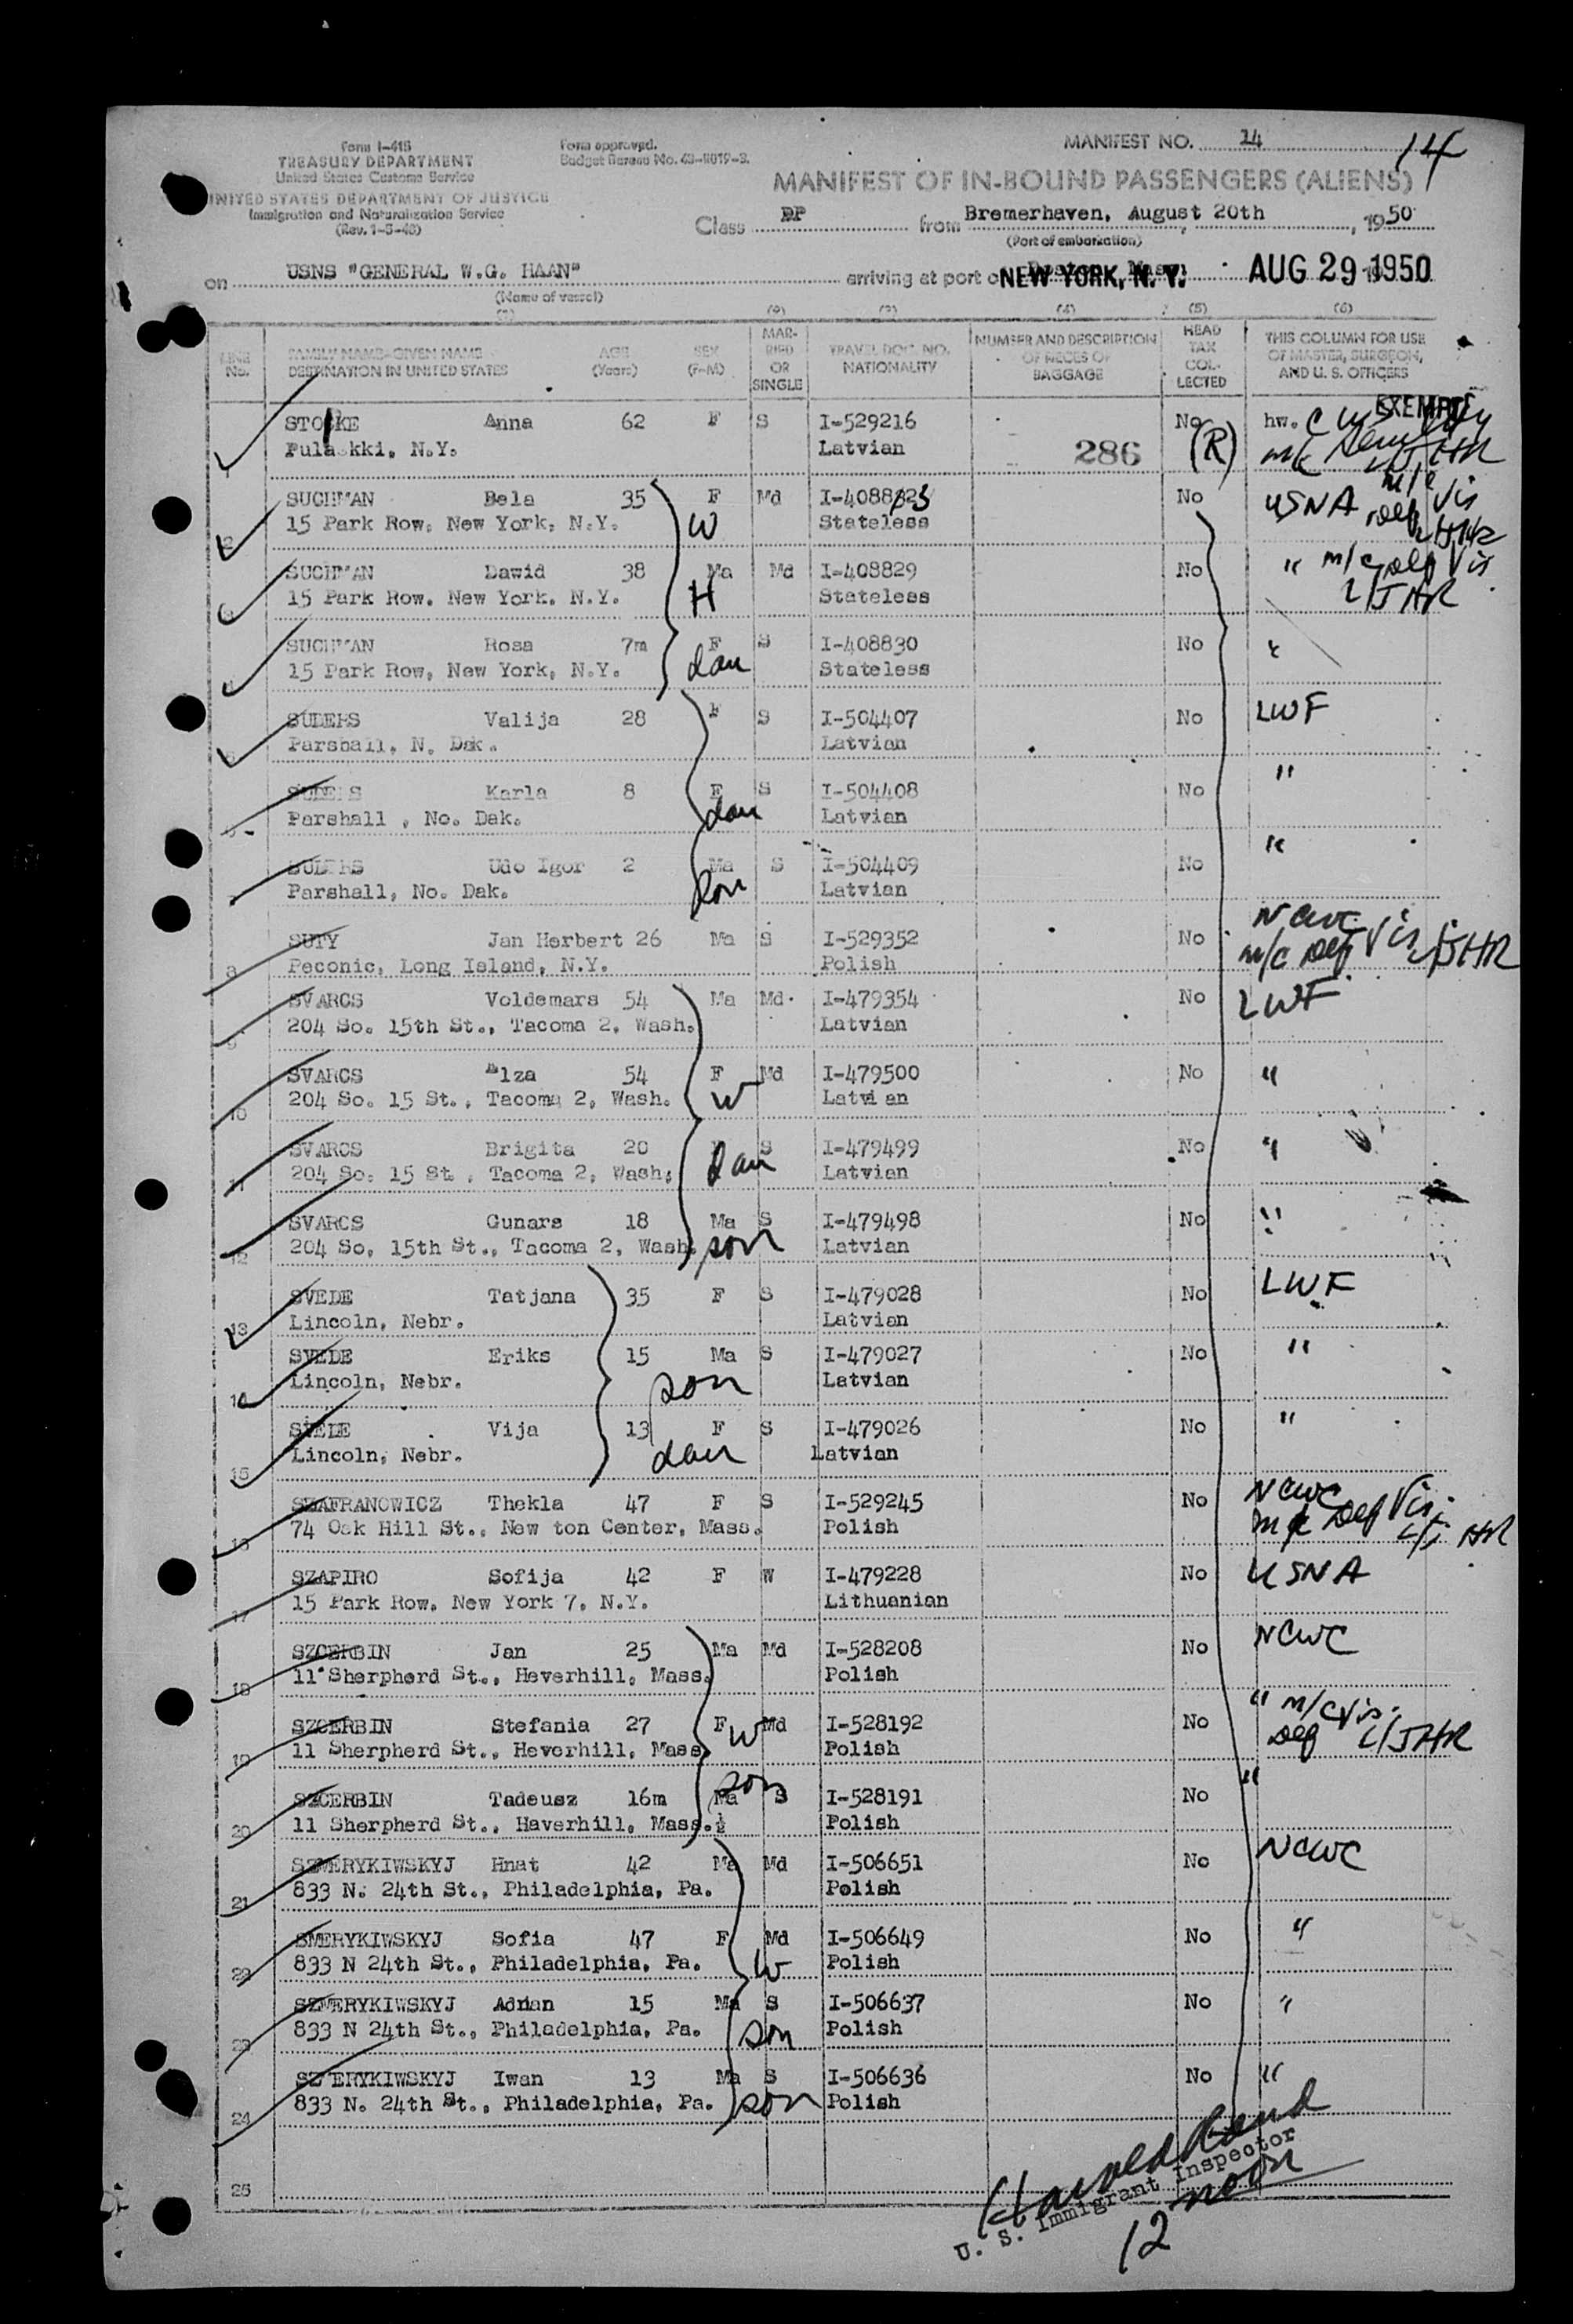 MANIFEST NO. 14
14
Form I-418
TREASURY DEPARTMENT
United States Customs Service
UNITED STATES DEPARTMENT OF JUSTICE
Immigration and Naturalization Service
(Rev. 1-5-48)
Form approved.
Budget Bureau No. 43-R019-3.
MANIFEST OF IN-BOUND PASSENGERS (ALIENS)
Class DP from Bremerhaven, August 20th, 1950
(Port of embarkation)
on USNS "GENERAL W.G. HAAN" arriving at port of NEW YORK, N. Y. AUG 29 1950
(Name of vessel)
(2) (3) (4) (5) (6)
LINE No.
FAMILY NAME-GIVEN NAME
DESTINATION IN UNITED STATES
AGE (Years)
SEX (F-M)
MARRIED OR SINGLE
TRAVEL DOC. NO. NATIONALITY
NUMBER AND DESCRIPTION OF PIECES OF BAGGAGE
HEAD TAX COLLECTED
THIS COLUMN FOR USE OF MASTER, SURGEON, AND U. S. OFFICERS
STOCKE Anna 62 F S I-529216 No hw. EXEMPT
1 Pulaskki, N.Y. Latvian 286 (R) m/c L/JHR
SUCHMAN Bela 35 F Md No USNA m/c Def Vis
2 15 Park Row, New York, N.Y. W Stateless L/JHR
SUCHMAN Dawid 38 Ma Md I-408829 No " m/c Def Vis
3 15 Park Row, New York, N.Y. H Stateless L/JHR
SUCHMAN Rosa 7m F S I-408830 No "
4 15 Park Row, New York, N.Y. dau Stateless
SUDERS Valija 28 F S I-504407 No LWF
5 Parshall, N. Dak. Latvian
SUDERS Karla 8 F S I-504408 No "
6 Parshall , No. Dak. dau Latvian
SUDERS Udo Igor 2 Ma S I-504409 No "
7 Parshall, No. Dak. son Latvian
SUTY Jan Herbert 26 Ma S I-529352 No NCWC
8 Peconic, Long Island, N.Y. Polish m/c Def Vis L/JHR
SVARCS Voldemars 54 Ma Md I-479354 No LWF
9 204 So. 15th St., Tacoma 2, Wash. Latvian
SVARCS Elza 54 F Md I-479500 No "
10 204 So. 15 St., Tacoma 2, Wash. W Latvian
SVARCS Brigita 20 S I-479499 No "
11 204 So. 15 St , Tacoma 2, Wash. dau Latvian
SVARCS Gunars 18 Ma S I-479498 No "
12 204 So, 15th St., Tacoma 2, Wash. son Latvian
SVEDE Tatjana 35 F S I-479028 No LWF
13 Lincoln, Nebr. Latvian
SVEDE Eriks 15 Ma S I-479027 No "
14 Lincoln, Nebr. son Latvian
SVEDE Vija 13 F S I-479026 No "
15 Lincoln, Nebr. dau Latvian
SZAFRANOWICZ Thekla 47 F S I-529245 No NCWC
16 74 Oak Hill St., New ton Center, Mass. Polish m/c Def Vis. L/JHR
SZAPIRO Sofija 42 F W I-479228 No USNA
17 15 Park Row, New York 7, N.Y. Lithuanian
SZCERBIN Jan 25 Ma Md I-528208 No NCWC
18 11 Sherpherd St., Heverhill, Mass. Polish
SZCERBIN Stefania 27 F W Md I-528192 No " m/c Vis.
19 11 Sherpherd St., Heverhill, Mass. Polish Def L/JHR
SZCERBIN Tadeusz 16m Ma son S I-528191 No "
20 11 Sherpherd St., Haverhill, Mass. ½ Polish
SZMERYKIWSKYJ Hnat 42 Ma Md I-506651 No NCWC
21 833 N. 24th St., Philadelphia, Pa. Polish
SMERYKIWSKYJ Sofia 47 F Md I-506649 No "
22 833 N 24th St., Philadelphia, Pa. W Polish
SZMERYKIWSKYJ Adrian 15 Ma S I-506637 No "
23 833 N 24th St., Philadelphia, Pa. son Polish
SZMERYKIWSKYJ Iwan 13 Ma S I-506636 No "
24 833 N. 24th St., Philadelphia, Pa. son Polish
25
Harold Rand
U. S. Immigrant Inspector
12 noon